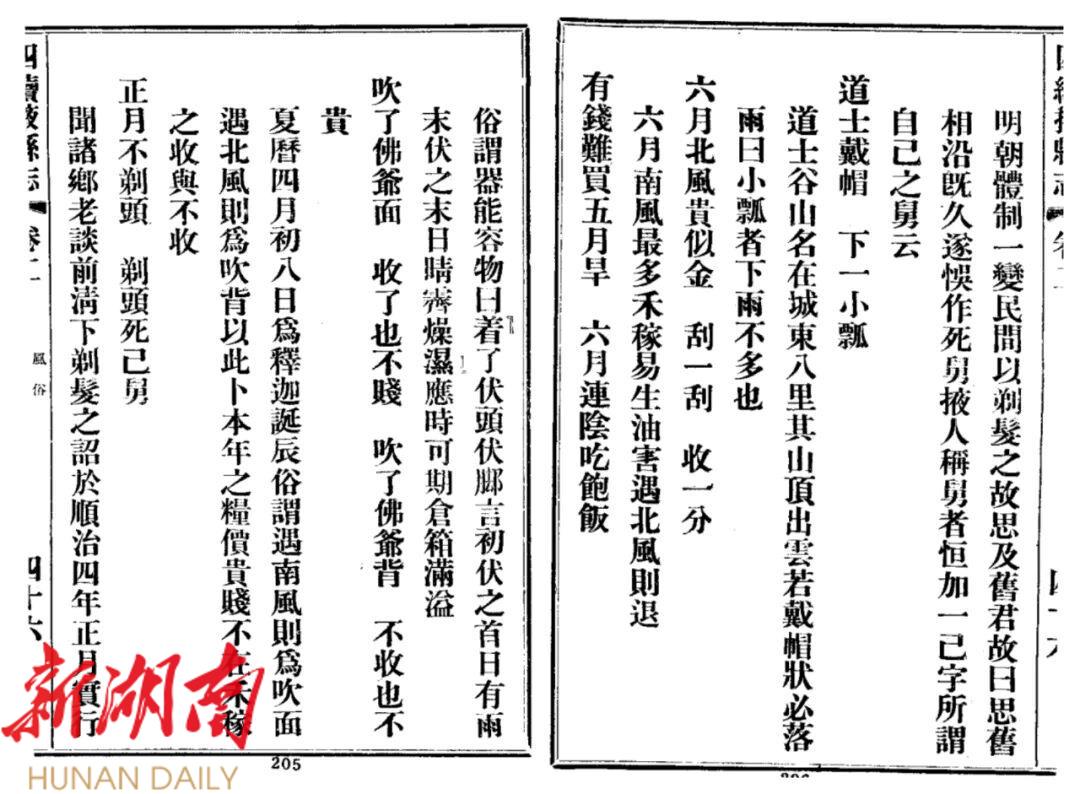 俗謂器能容物曰着了伏頭伏腳言初伏之首日有雨
末伏之末日晴霽燥濕應時可期倉箱滿溢
吹了佛爺面　收了也不賤　吹了佛爺背　不收也不
貴
夏曆四月初八日為釋迦誕辰俗謂遇南風則為吹面
遇北風則為吹背以此卜本年之糧價貴賤不在禾稼
之收與不收
正月不剃頭　剃頭死己舅
聞諸鄉老談前清下剃髮之詔於順治四年正月實行
四續掖縣志　卷二　風俗　四十六
205
明朝體制一變民間以剃髮之故思及舊君故曰思舊
相沿旣久遂悞作死舅掖人稱舅者恒加一己字所謂
自己之舅云
道士戴帽　下一小瓢
道士谷山名在城東八里其山頂出雲若戴帽狀必落
雨曰小瓢者下雨不多也
六月北風貴似金　刮一刮　收一分
六月南風最多禾稼易生油害遇北風則退
有錢難買五月旱　六月連陰吃飽飯
新湖南
HUNAN DAILY